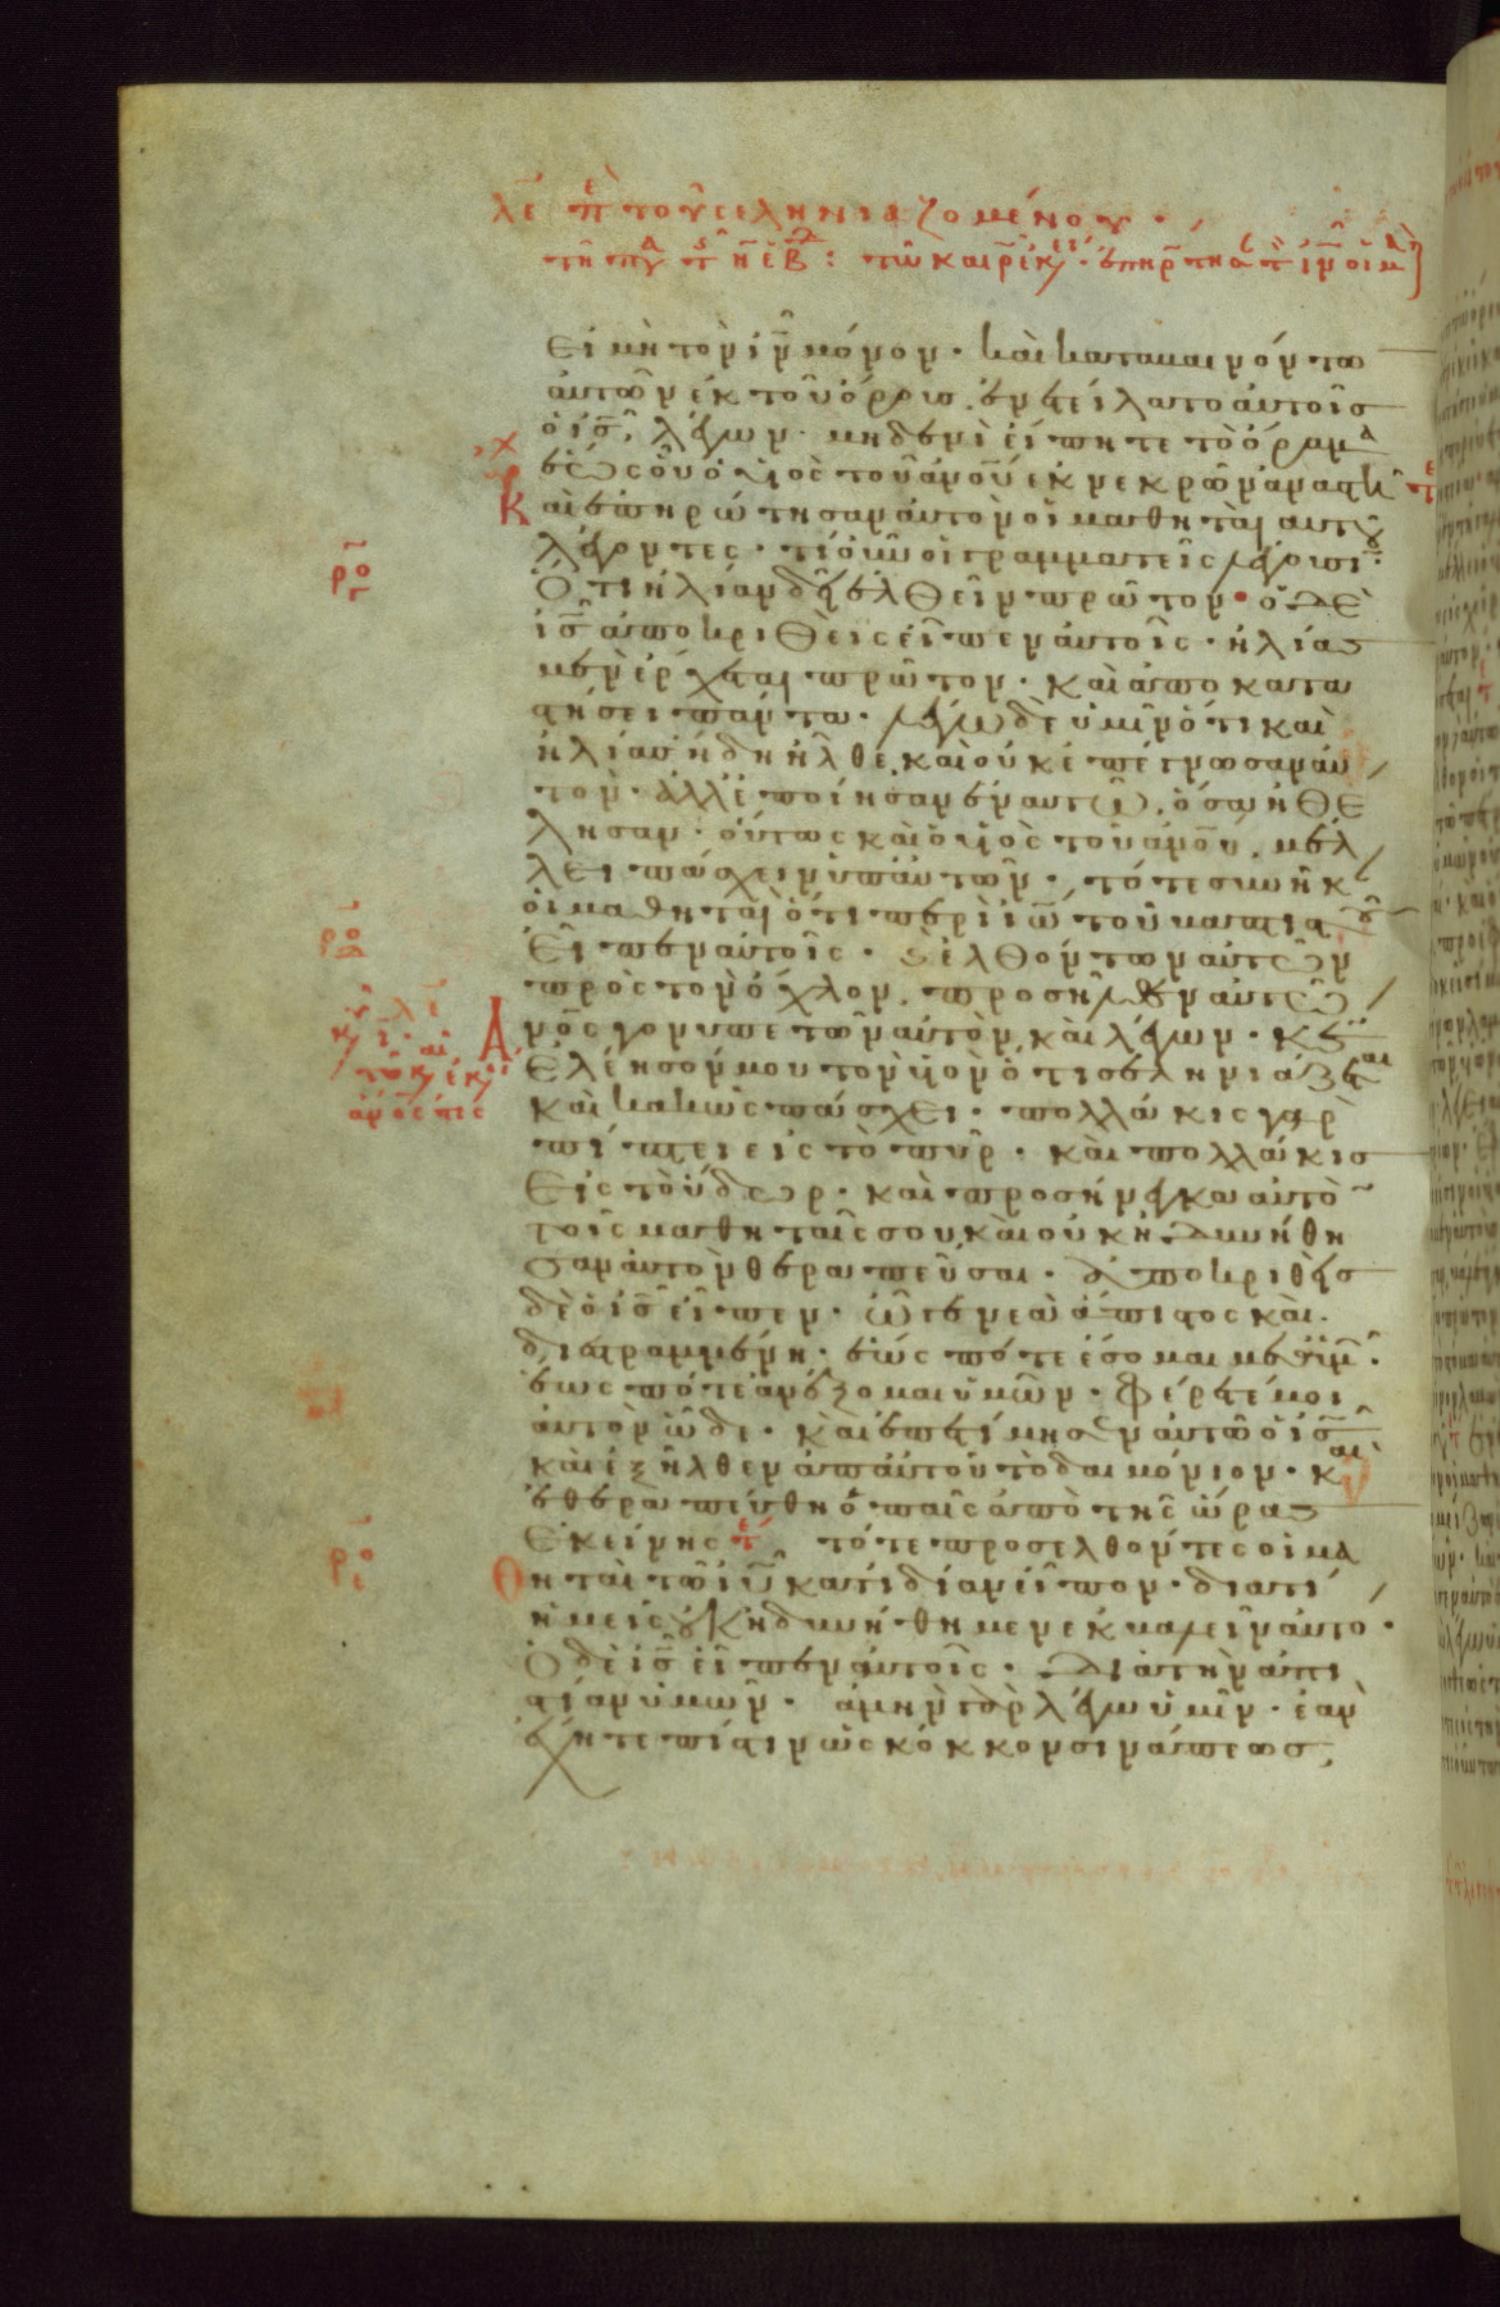 λε περὶ τοῦ σεληνιαζομένου
εἰ μὴ τὸν ιν μόνον· καὶ καταβαινόντω
αὐτῶν ἐκ τοῦ ὄρους, ἐνετείλατο αὐτοῖς
ὁ ις, λέγων· μηδενὶ εἴπητε τὸ ὅραμα
ἕως οὗ ὁ υἱὸς τοῦ ανου ἐκ νεκρῶν ἀναστῆ
Καὶ ἐπηρώτησαν αὐτὸν οἱ μαθηταὶ αυτου
λέγοντες· τί οὖν οἱ γραμματεῖς λέγουσι·
Ὅτι ἠλίαν δεῖ ἐλθεῖν πρῶτον· ὁ δὲ
ις ἀποκριθεὶς εἶπεν αὐτοῖς· ἠλίας
μὲν ἔρχεται πρῶτον· καὶ ἀποκατα
στήσει πάντα· λέγω δὲ ὑμῖν ὅτι καὶ
ἠλίας ἤδη ἦλθε, καὶ οὐκ ἐπέγνωσαν αὐ
τὸν· ἀλλ' ἐποίησαν ἐν αυτῶ, ὅσα ἠθέ
λησαν· οὕτως καὶ ὁ υἱὸς τοῦ ανου, μέλ
λει πάσχειν ὑπ' αὐτῶν· τότε συνῆκ
οἱ μαθηταὶ ὅτι περὶ ιω τοῦ βαπτιστοῦ
εἶπεν αὐτοῖς· καὶ ἐλθόντων αὐτῶν
πρὸς τὸν ὄχλον, προσῆλθεν αὐτῶ
ανος γονυπετῶν αὐτὸν, καὶ λέγων· κε
ἐλέησόν μου τὸν υἱὸν ὅτι σεληνιάζεται
καὶ κακῶς πάσχει· πολλάκις γὰρ
πίπτει εἰς τὸ πῦρ· καὶ πολλάκις
εἰς τὸ ὕδωρ· καὶ προσήνεγκα αὐτὸ
τοῖς μαθηταῖς σου, καὶ οὐκ ἠδυνήθη
σαν αὐτὸν θεραπεῦσαι· ἀποκριθεὶς
δὲ ὁ ις εἶπεν· ὦ γενεὰ ἄπιστος καὶ
διεστραμμένη· ἕως πότε ἔσομαι μεθ' ὑμῶν·
ἕως πότε ἀνέξομαι ὑμῶν· φέρετέ μοι
αὐτὸν ὧδε· καὶ ἐπετίμησεν αὐτῶ ὁ ις
καὶ ἐξῆλθεν ἀπ' αὐτοῦ τὸ δαιμόνιον· καὶ
ἐθεραπεύθη ὁ παῖς ἀπὸ τῆς ὥρας
ἐκείνης τότε προσελθόντες οἱ μα
θηταὶ τῶ ιυ κατιδίαν εἶπον· διατί
ἡμεῖς οὐκ ἠδυνήθημεν ἐκβαλεῖν αὐτο·
Ὁ δὲ ις εἶπεν αὐτοῖς· διὰ τὴν ἀπι
στίαν ὑμῶν· ἀμὴν γὰρ λέγω ὑμῖν· ἐὰν
ἔχητε πίστιν ὡς κόκκον σινάπεως,